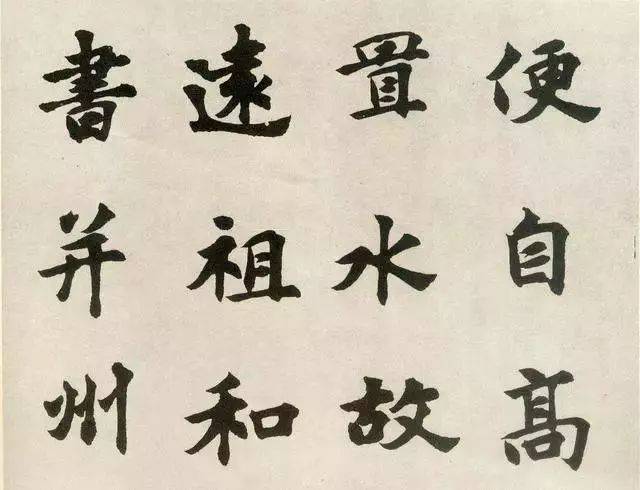 便自高
置水故
遠祖和
書并州